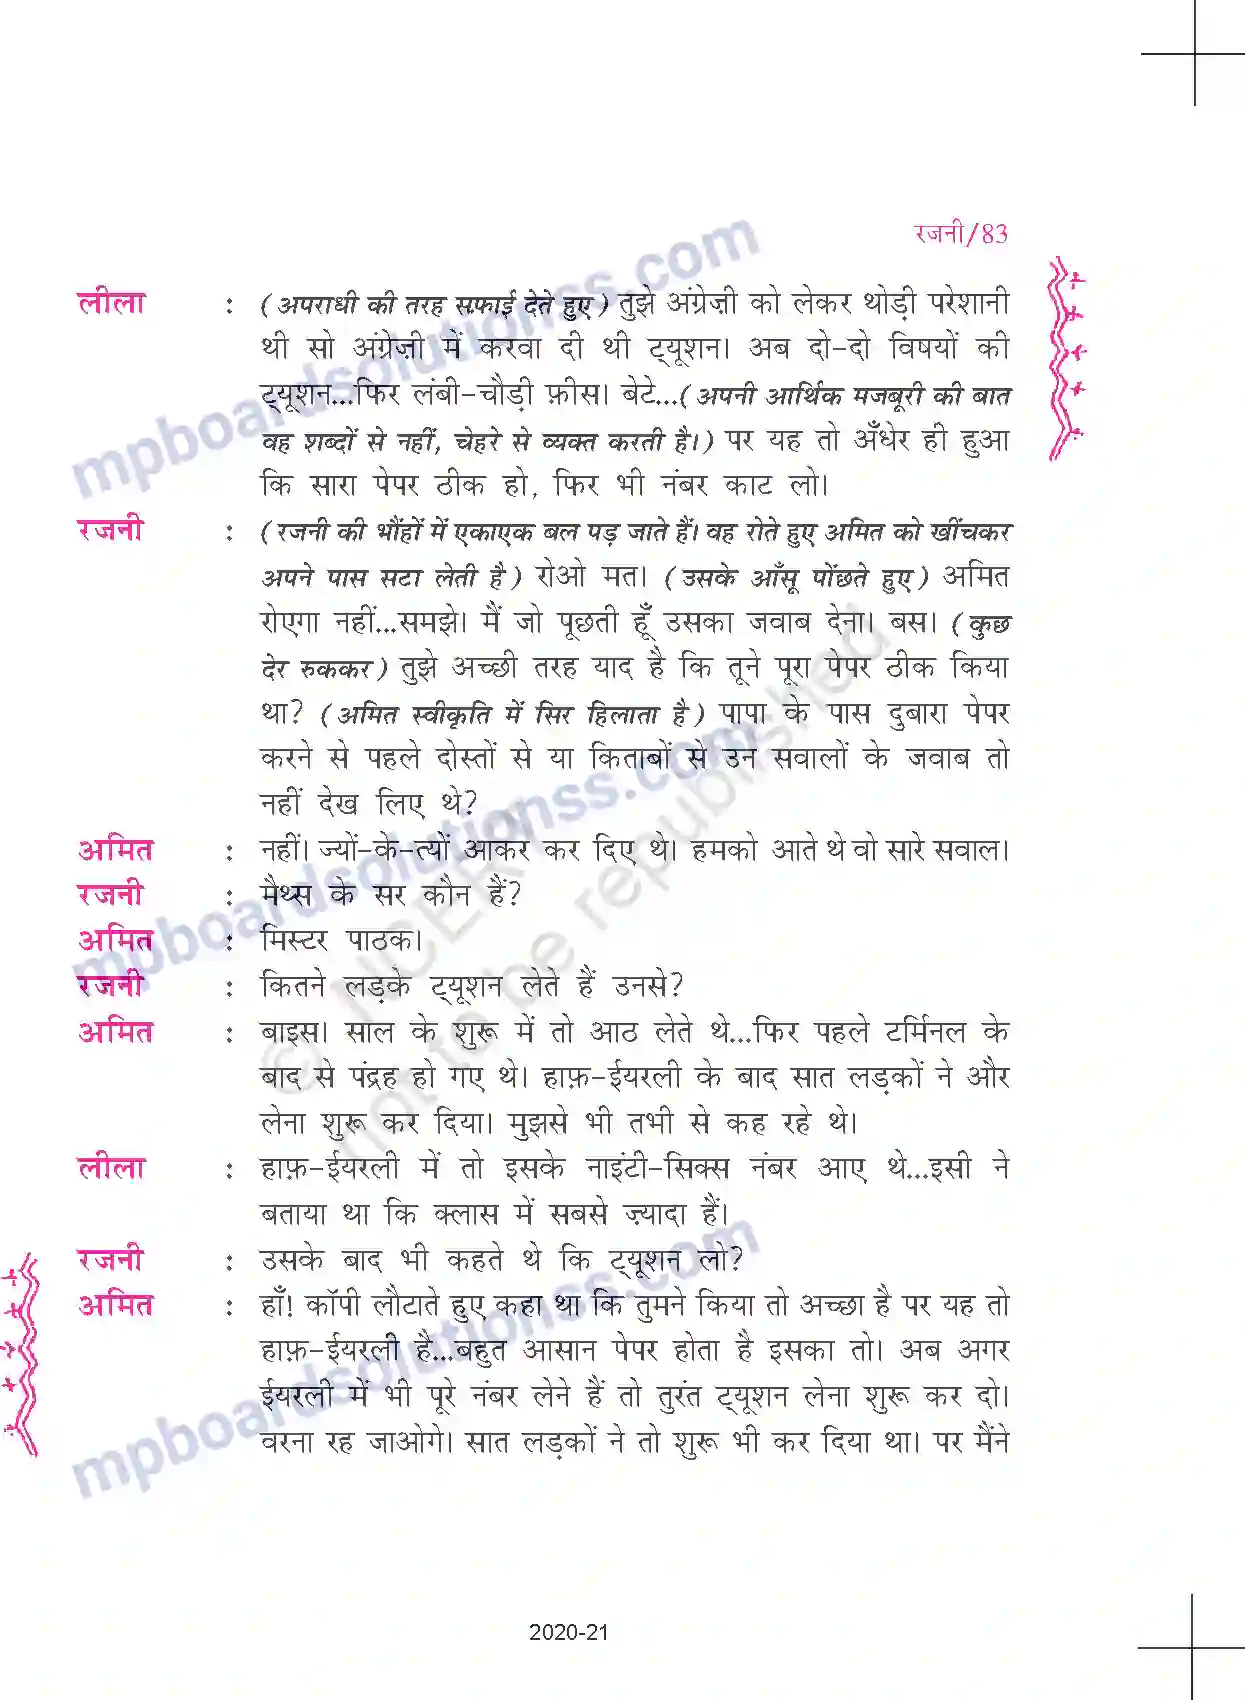 रजनी/83
लीला : (अपराधी की तरह सफ़ाई देते हुए) तुझे अंग्रेज़ी को लेकर थोड़ी परेशानी
थी सो अंग्रेज़ी में करवा दी थी ट्यूशन। अब दो-दो विषयों की
ट्यूशन...फिर लंबी-चौड़ी फ़ीस। बेटे...(अपनी आर्थिक मजबूरी की बात
वह शब्दों से नहीं, चेहरे से व्यक्त करती है।) पर यह तो अँधेर ही हुआ
कि सारा पेपर ठीक हो, फिर भी नंबर काट लो।
रजनी : (रजनी की भौंहों में एकाएक बल पड़ जाते हैं। वह रोते हुए अमित को खींचकर
अपने पास सटा लेती है) रोओ मत। (उसके आँसू पोंछते हुए) अमित
रोएगा नहीं...समझे। मैं जो पूछती हूँ उसका जवाब देना। बस। (कुछ
देर रुककर) तुझे अच्छी तरह याद है कि तूने पूरा पेपर ठीक किया
था? (अमित स्वीकृति में सिर हिलाता है) पापा के पास दुबारा पेपर
करने से पहले दोस्तों से या किताबों से उन सवालों के जवाब तो
नहीं देख लिए थे?
अमित : नहीं। ज्यों-के-त्यों आकर कर दिए थे। हमको आते थे वो सारे सवाल।
रजनी : मैथ्स के सर कौन हैं?
अमित : मिस्टर पाठक।
रजनी : कितने लड़के ट्यूशन लेते हैं उनसे?
अमित : बाइस। साल के शुरू में तो आठ लेते थे...फिर पहले टर्मिनल के
बाद से पंद्रह हो गए थे। हाफ़-ईयरली के बाद सात लड़कों ने और
लेना शुरू कर दिया। मुझसे भी तभी से कह रहे थे।
लीला : हाफ़-ईयरली में तो इसके नाइंटी-सिक्स नंबर आए थे...इसी ने
बताया था कि क्लास में सबसे ज़्यादा हैं।
रजनी : उसके बाद भी कहते थे कि ट्यूशन लो?
अमित : हाँ! कॉपी लौटाते हुए कहा था कि तुमने किया तो अच्छा है पर यह तो
हाफ़-ईयरली है...बहुत आसान पेपर होता है इसका तो। अब अगर
ईयरली में भी पूरे नंबर लेने हैं तो तुरंत ट्यूशन लेना शुरू कर दो।
वरना रह जाओगे। सात लड़कों ने तो शुरू भी कर दिया था। पर मैंने
2020-21
mpboardsolutionss.com
mpboardsolutionss.com
mpboardsolutionss.com
© NCERT
not to be republished